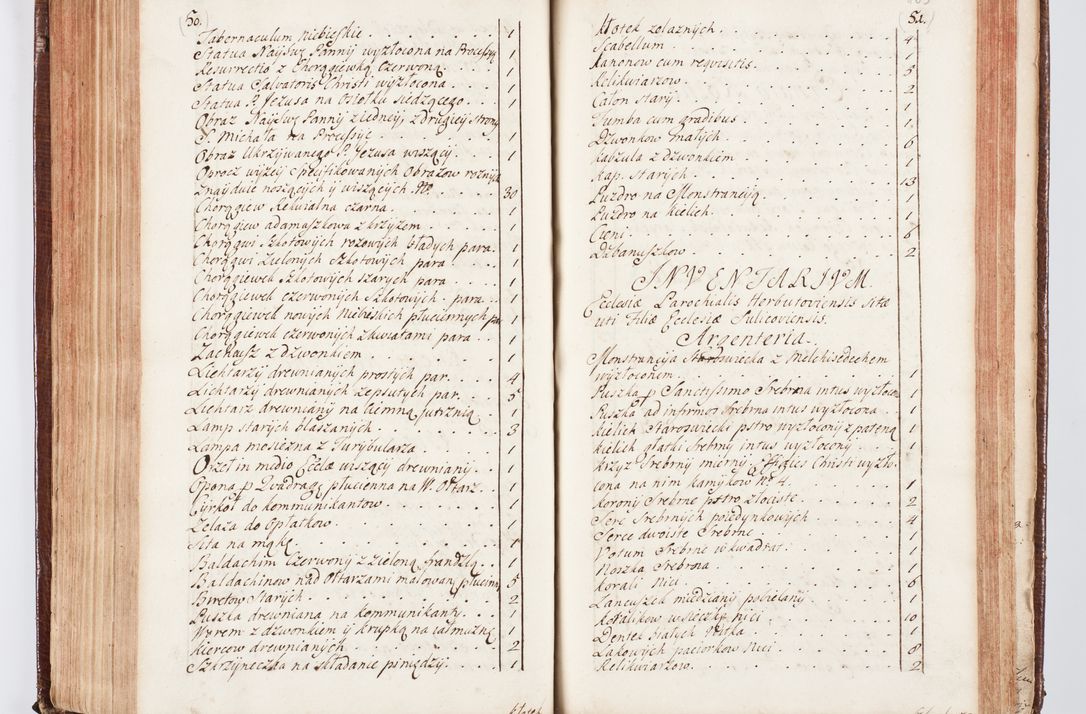 50.
Tabernaculum niebieskie 1
Statua Nayśw: Panny wyzłocona na Procesyą 1
Resurrectio z Chorągiewką Czerwoną 1
Statua Salvatoris Christi wyzłocona 1
Statua P. Jezusa na Osiołku siedzącego 1
Obraz Nayśw Panny z iedney, z drugiey strony
S. Michała na Procesyię 1
Obraz Ukrzyżwanego P. Jezusa wiszący 1
Oprocz wyzey specyfikowanych Obrazow roznych
Znayduie noszących y wiszących No. 30
Chorągiew Rekwialna czarna 1
Chorągiew adamaszkowa z krzyżem 1
Chorągwi Szkotowych rozowych bładych para 1
Chorągwi Zielonych Szkotowych para 1
Chorągiewek Szkotowych szarych para 1
Chorągiewek czerwonych Szkotowych para 1
Chorągiewek nowych Niebieskich płuciennych par 1
Chorągiewek czerwonych z kwiatami para 1
Zacheusz z dzwonkiem 1
Lichtarzy drewnianych prostych par 4
Lichtarzy drewnianych zepsutych par 5
Lichtarz drewniany na Ciemną Jutrznią 1
Lamp starych blaszanych 3
Lampa mosiezna z Turybularza 1
Orzeł in medio Ecclæ wiszący drewniany 1
Opona p Quadragę płucienna na W. Ołtarz 1
Cyrkoł do kommunikantow 1
Zelaza do Opłatkow 1
Sita na mąkę 1
Baldachim Czerwony z zieloną frandzlą 1
Baldachinow nad Ołtarzami malowany płucien 5
Biretow Starych 2
Puszka drewniana na kommunikanty 1
Worem z dzwonkiem y krupką na iałmużnę 1
kiercow drewnianych 2
Szkrzyneczka na składanie piniędzy 1
51.
Kłotek zelaznych 4
Scabellum 1
Kanonow cum requisitis 3
Relikwiarzow 2
Całon stary 1
Tumba cum gradibus 1
Dzwonkow małych 6
Kabzula z dzwonkiem 1
Kap. Starych 13
Puzdro na Monstrancyą 1
Puzdro na kielich 1
Cieni 6
Dzbanuszkow 2
INVENTARIVM
Ecclesiæ Parochialis Herbutoviensis sitæ
uti Filiæ Ecclesiæ Sulicoviensis.
Argenteria.
Monstrancyia Staroswiecka z Melchisedechem
wyzłoconem 1
Puszka p Sanctissimo Srebrna intus wyzłocon 1
Puszka ad infirmos Srebrna intus wyzłocona 1
kielich Staroswiecki pstro wyzłocony z pateną 1
kielich gładki Srebrny intus wyzłocony 1
krzyz Srebrny mierny, Effigies Christi wyzło-
cona na nim kamykow Nr 4. 1
korony Srebrne pstro złociste 2
Serc Srebrnych poiedynkowych 4
Serce dwoiste Srebrne 1
Votum Srebrne w kwadrat 1
Noszka Srebrna 1
korali nici 6
Łancuszek miedziany pobielany 1
koralikow w sieczkę nici 10
Dentek białych nitka 1
Lakowych paciorkow nici 8
Relikwiarzow 2